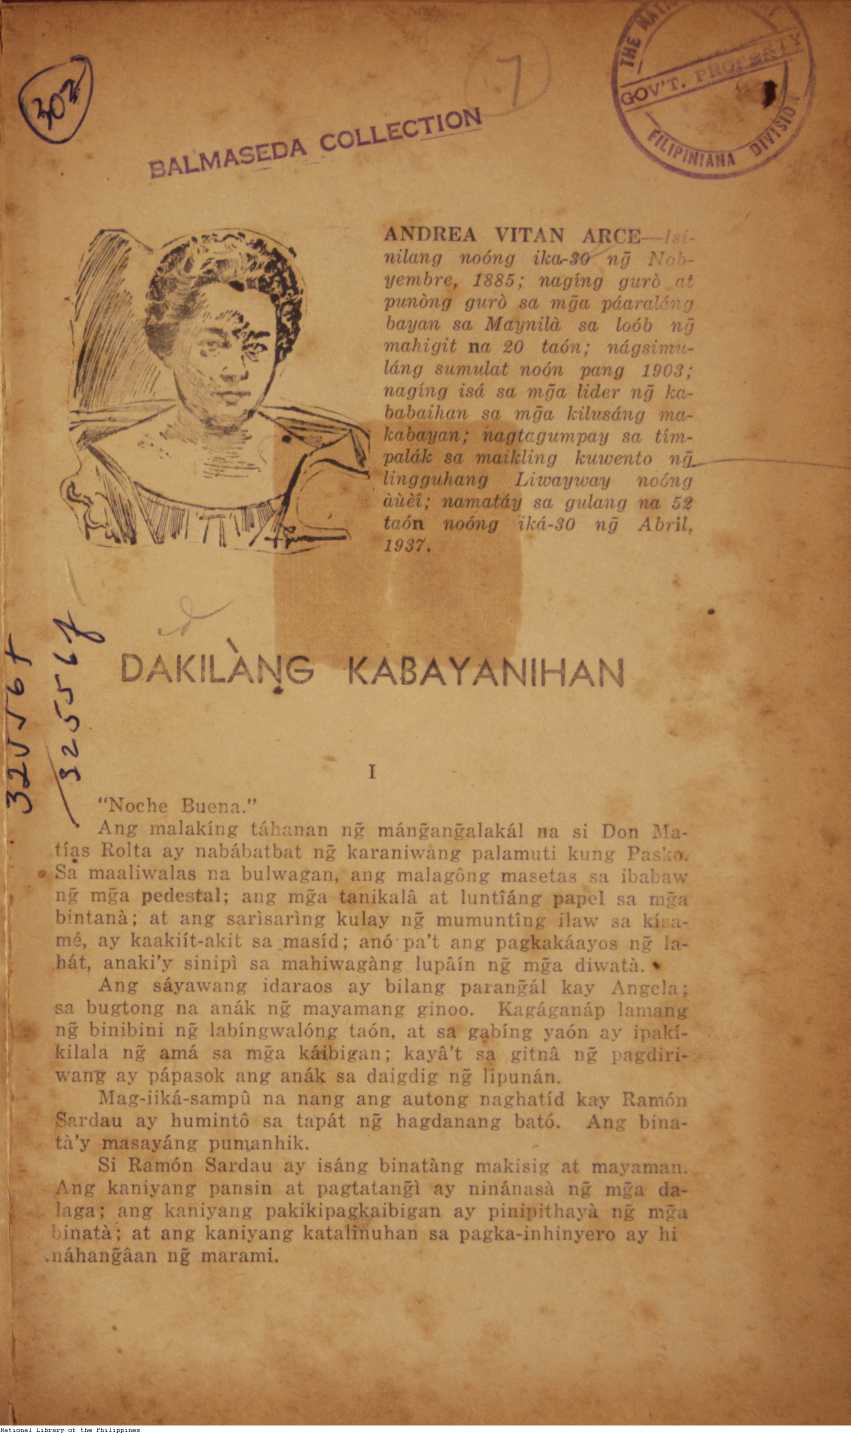 302
7
THE NATI
GOV'T. PROPERTY
FILIPINIANA DIVISION
BALMASEDA COLLECTION
ANDREA VITAN ARCE—Isi-
nilang noóng ika-30 ng̃ Nob-
yembre, 1885; nagíng gurò at
punòng gurò sa mg̃a páaraláng
bayan sa Maynilà sa loób ng̃
mahigit na 20 taón; nágsimu-
láng sumulat noón pang 1903;
nagíng isá sa mg̃a lider ng̃ ka-
babaihan sa mg̃a kilusáng ma-
kabayan; nagtagumpay sa tim-
palák sa maikling kuwento ng̃
lingguhang Liwayway noóng
namatáy sa gulang na 52
taón noóng iká-30 ng̃ Abril,
1937.
DAKILÀNG KABAYANIHAN
32556f
32556f
I
"Noche Buena."
Ang malakíng táhanan ng̃ máng̃ang̃alakál na si Don Ma-
tías Rolta ay nabábatbat ng̃ karaniwàng palamuti kung Pasko.
Sa maaliwalas na bulwagan, ang malagông masetas sa ibabaw
ng̃ mg̃a pedestal; ang mg̃a tanikalâ at luntîáng papel sa mg̃a
bintanà; at ang sarìsarìng kulay ng̃ mumuntîng ilaw sa kisa-
mé, ay kaakiít-akit sa masíd; anó pa't ang pagkakáayos ng̃ la-
hát, anaki'y sinipì sa mahiwagàng lupâín ng̃ mg̃a diwatà.
Ang sáyawang idaraos ay bilang parang̃ál kay Angela;
sa bugtong na anák ng̃ mayamang ginoo. Kagáganáp lamang
ng̃ binibini ng̃ labíngwalóng taón, at sa gabíng yaón ay ipakí-
kilala ng̃ amá sa mg̃a káibigan; kayâ't sa gitnâ ng̃ pagdiri-
wang ay pápasok ang anák sa daigdig ng̃ lipunán.
Mag-iiká-sampû na nang ang autong naghatíd kay Ramón
Sardau ay humintô sa tapát ng̃ hagdanang bató. Ang bina-
tà'y masayáng pumanhik.
Si Ramón Sardau ay isáng binatàng makisig at mayaman.
Ang kaniyang pansin at pagtatang̃ì ay ninánasà ng̃ mg̃a da-
laga; ang kaniyang pakikipagkaibigan ay pinipithayà ng̃ mg̃a
binatà; at ang kaniyang katalinuhan sa pagka-inhinyero ay hi
náhang̃âan ng̃ marami.
National Library of the Philippines